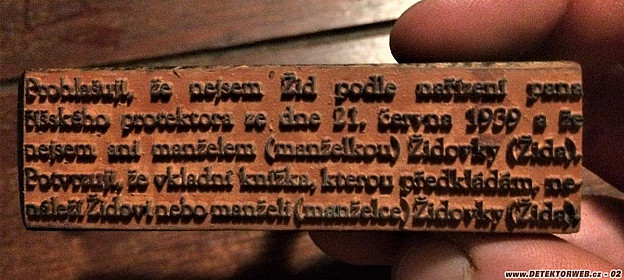 Prohlašuji, že nejsem Žid podle nařízení pana
říšského protektora ze dne 21. června 1939 a že
nejsem ani manželem (manželkou) Židovky (Žida).
Potvrzuji, že vkladní knížka, kterou předkládám, ne-
náleží Židovi nebo manželi (manželce) Židovky (Žida).
www.DETEKTORWEB.cz - 02